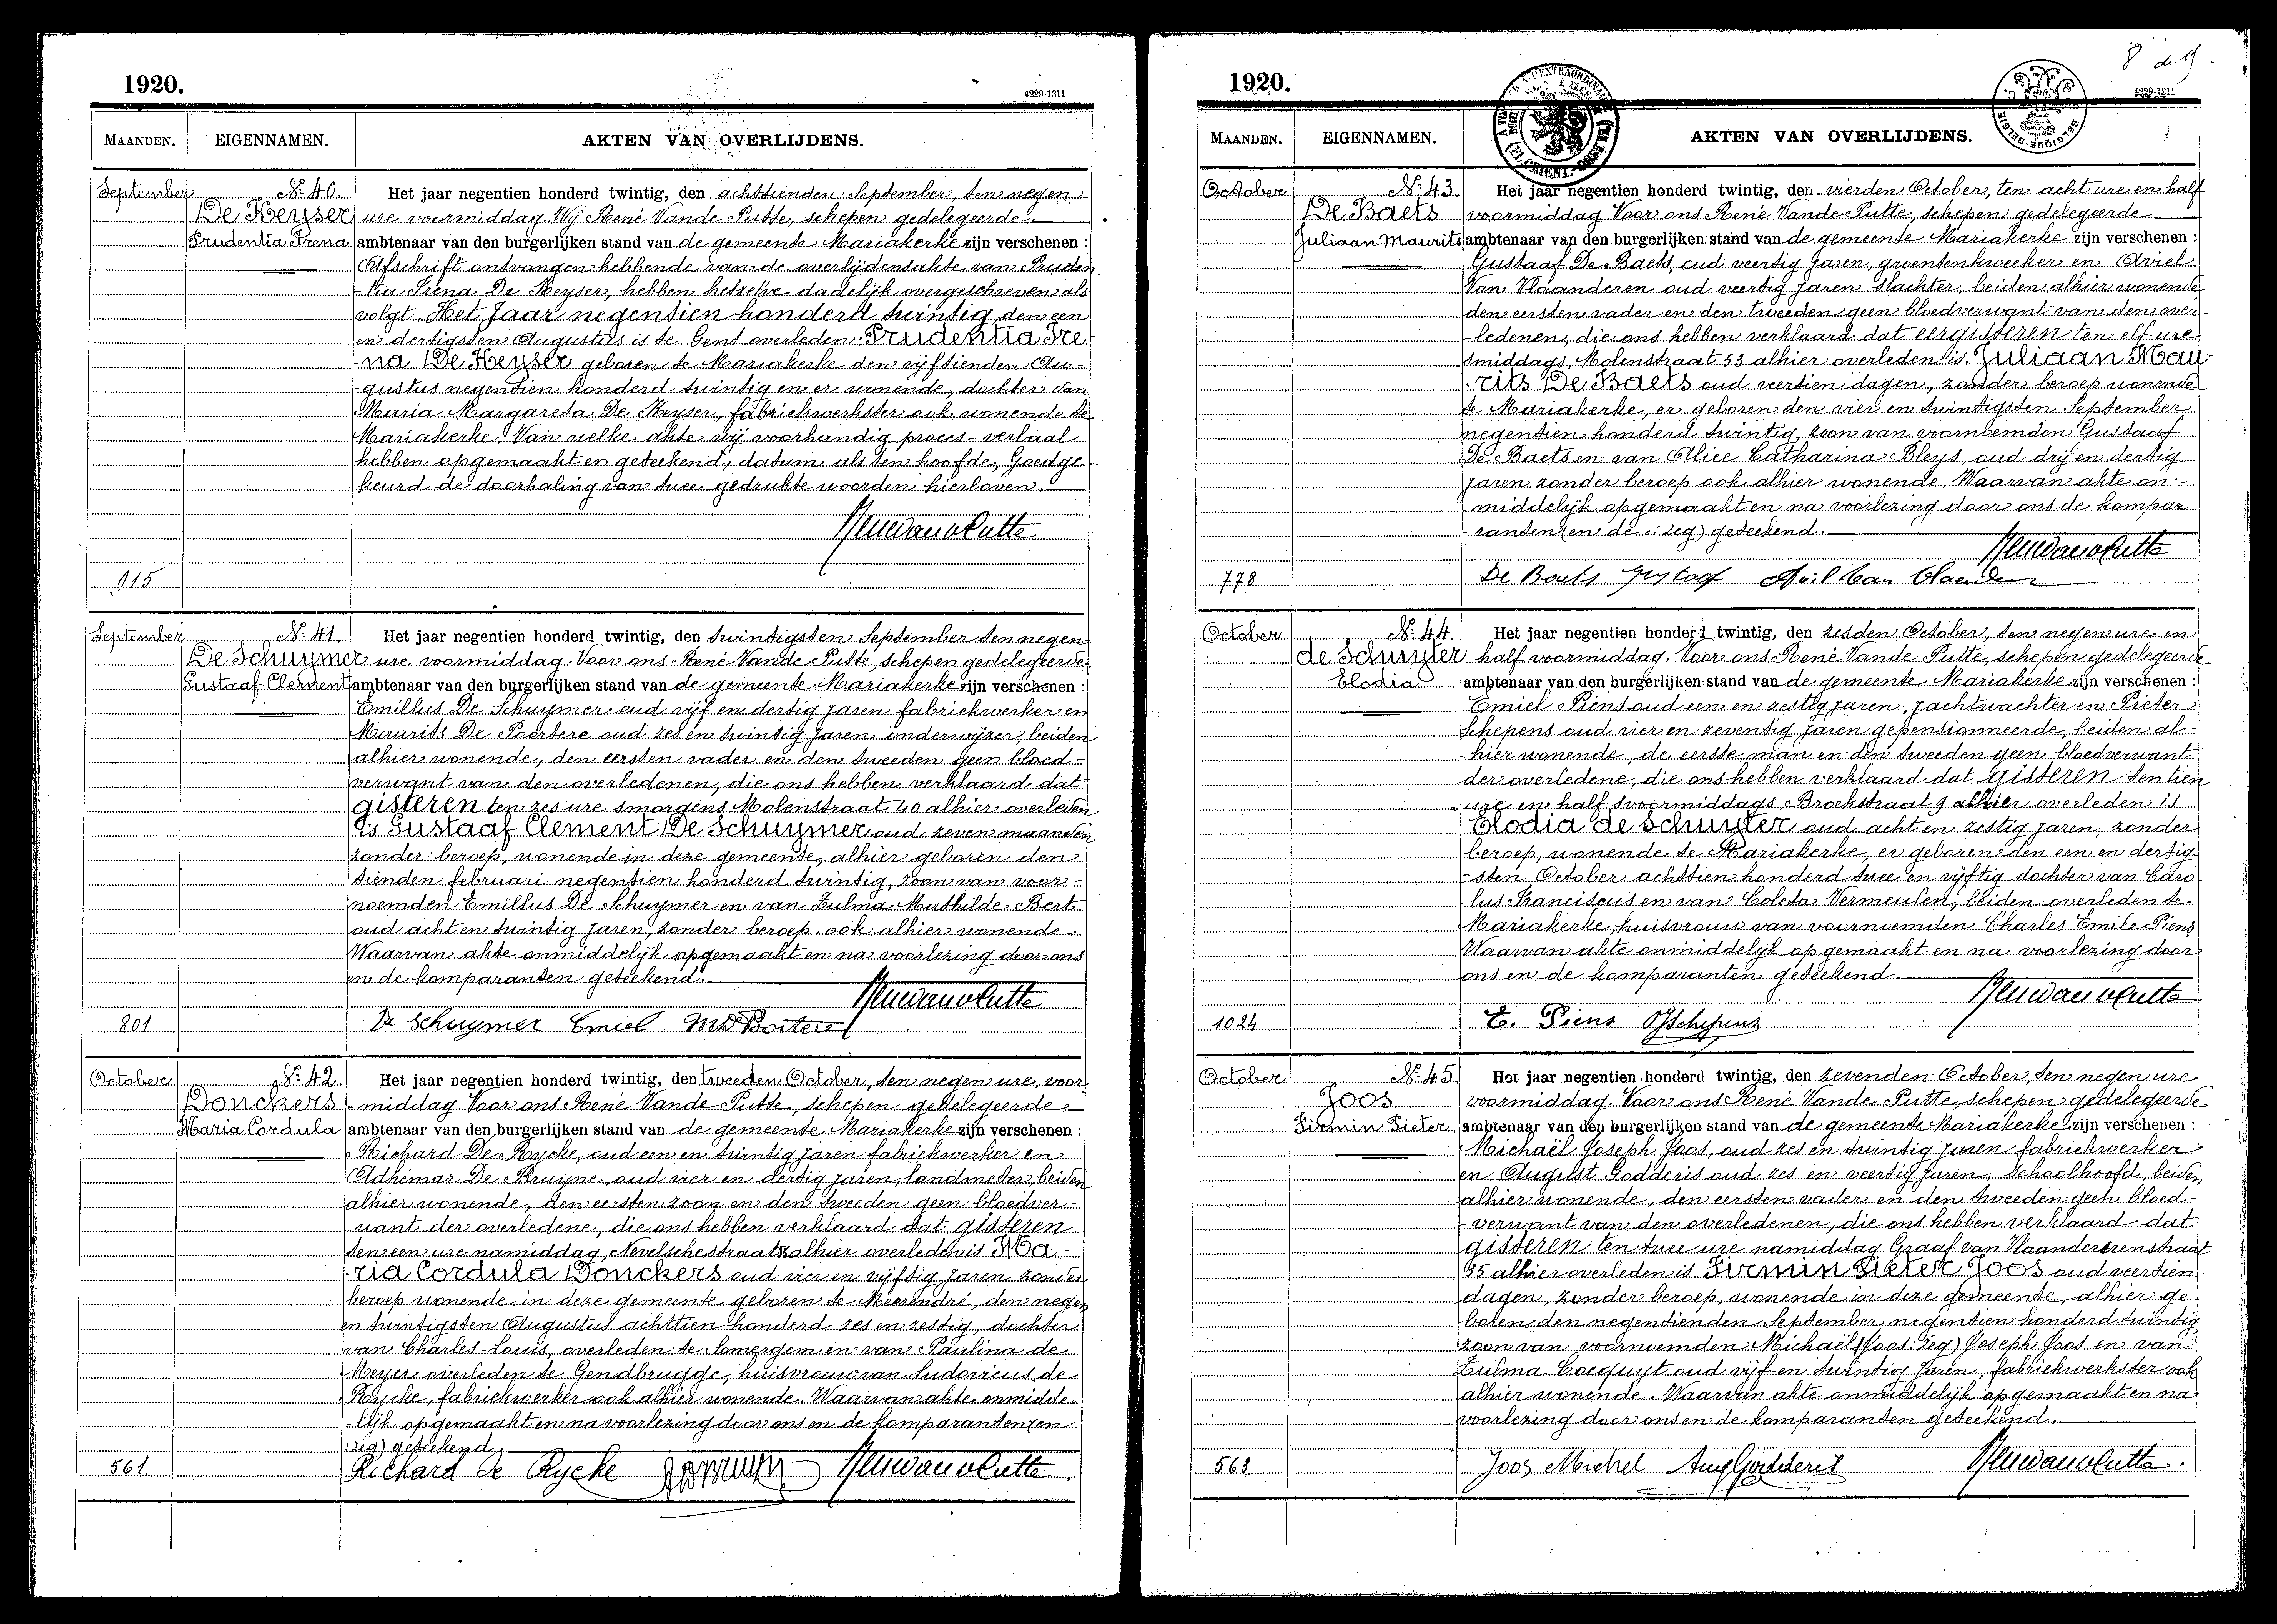 1920.
4229-1311
MAANDEN. EIGENNAMEN. AKTEN VAN OVERLIJDENS.
September No 40. Het jaar negentien honderd twintig, den achttienden September, ten negen
De Keyser ure voormiddag. Wij René Vande Putte, schepen gedelegeerde
Prudentia Irena ambtenaar van den burgerlijken stand van de gemeente Mariakerke zijn verschenen :
Afschrift ontvangen hebbende van de overlijdensakte van Pruden-
tia Irena De Keyser, hebben hetzelve dadelijk overgeschreven als
volgt. Het Jaar negentien honderd twintig, den een
en dertigsten Augustus is te Gent overleden: Prudentia Ire
na De Keyser geboren te Mariakerke den vijftienden Au-
gustus negentien honderd twintig en er wonende, dochter van
Maria Margareta De Keyser, fabriekwerkster ook wonende te
Mariakerke. Van welke akte wij voorhandig proces-verbaal
hebben opgemaakt en geteekend, datum als ten hoofde, Goedge-
keurd de doorhaling van twee gedrukte woorden hierboven.
Renévandeputte
915
September No 41. Het jaar negentien honderd twintig, den twintigsten September ten negen
De Schuymer ure voormiddag. Voor ons René Vande Putte, schepen gedelegeerde
Gustaaf Clement ambtenaar van den burgerlijken stand van de gemeente Mariakerke zijn verschenen :
Emillus De Schuymer oud vijf en dertig jaren fabriekwerker en
Maurits De Poortere oud zes en twintig jaren onderwijzer, beiden
alhier wonende, den eersten vader en den tweeden geen bloed-
verwant van den overledenen, die ons hebben verklaard dat
gisteren ten zes ure smorgens Molenstraat 40 alhier overleden
is Gustaaf Clement De Schuymer oud zeven maanden
zonder beroep, wonende in deze gemeente, alhier geboren den
tienden februari negentien honderd twintig, zoon van voor-
noemden Emillus De Schuymer en van Zulma Mathilde Bert
oud acht en twintig jaren, zonder beroep ook alhier wonende
Waarvan akte onmiddelijk opgemaakt en na voorlezing door ons
en de komparanten geteekend.
Renévandeputte
801 De Schuymer Emiel MDePoortere
October No 42. Het jaar negentien honderd twintig, den tweeden October, ten negen ure voor
Donckers -middag. Voor ons René Vande Putte, schepen gedelegeerde
Maria Cordula ambtenaar van den burgerlijken stand van de gemeente Mariakerke zijn verschenen :
Richard De Rycke, oud een en twintig jaren fabriekwerker en
Adhémar De Bruyne, oud vier en dertig jaren, landmeter, beiden
alhier wonende, den eersten zoon en den tweeden geen bloedver-
want der overledene, die ons hebben verklaard dat gisteren
ten een ure namiddag, Nevelschestraat alhier overleden is Ma-
ria Cordula Donckers oud vier en vijftig jaren zonder
beroep wonende in deze gemeente geboren te Meerendré, den negen
en twintigsten Augustus achttien honderd zes en zestig, dochter
van Charles-Louis, overleden te Somergem en van Paulina de
Meyer overleden te Gendbrugge, huisvrouw van Ludovicus de
Rycke, fabriekwerker ook alhier wonende. Waarvan akte onmidde-
lijk opgemaakt en na voorlezing door ons en de komparanten (en
:zeg) geteekend.
561 Richard De Rycke Renévandeputte
8 d. 9.
1920.
4229-1311
MAANDEN. EIGENNAMEN. AKTEN VAN OVERLIJDENS.
October No 43. Het jaar negentien honderd twintig, den vierden October, ten acht ure en half
De Baets voormiddag. Voor ons René Vande Putte, schepen gedelegeerde
Juliaan Maurits ambtenaar van den burgerlijken stand van de gemeente Mariakerke zijn verschenen :
Gustaaf De Baets, oud veertig jaren, groentenkweeker en Aviel
Van Vlaanderen oud veertig jaren slachter, beiden alhier wonende
den eersten vader en den tweeden geen bloedverwant van den over-
-ledenen, die ons hebben verklaard dat eergisteren ten elf ure
smiddags, Molenstraat 53 alhier overleden is: Juliaan Mau-
rits De Baets oud veertien dagen, zonder beroep wonende
te Mariakerke, er geboren den vier en twintigsten September
negentien honderd twintig, zoon van voornoemden Gustaaf
De Baets en van Alice Catharina Bleys, oud drij en dertig
jaren zonder beroep ook alhier wonende. Waarvan akte on-
middelijk opgemaakt en na voorlezing door ons de kompa-
ranten (en de :zeg) geteekend.
Renévandeputte
778 De Baets Gustaaf Aviel Van Vlaenderen
October No 44. Het jaar negentien honderd twintig, den zesden October, ten negen ure en
de Schuyter half voormiddag. Voor ons René Vande Putte, schepen gedelegeerde
Elodia ambtenaar van den burgerlijken stand van de gemeente Mariakerke zijn verschenen :
Emiel Piens oud een en zestig jaren, jachtwachter en Pieter
Schepens oud vier en zeventig jaren gepensionneerde, beiden al-
hier wonende, de eerste man en den tweeden geen bloedverwant
der overledene, die ons hebben verklaard dat gisteren ten tien
ure en half svoormiddags Broekstraat 9 alhier overleden is
Elodia de Schuyter oud acht en zestig jaren, zonder
beroep, wonende te Mariakerke, er geboren den een en dertig-
-sten October achttien honderd twee en vijftig dochter van Caro
lus Franciscus en van Coleta Vermeulen, beiden overleden te
Mariakerke, huisvrouw van voornoemden Charles Emile Piens
Waarvan akte onmiddelijk opgemaakt en na voorlezing door
ons en de komparanten geteekend.
Renévandeputte
1024 E. Piens PSchepens
October No 45. Het jaar negentien honderd twintig, den zevenden October, ten negen ure
Joos voormiddag. Voor ons René Vande Putte, schepen gedelegeerde
Firmin Pieter ambtenaar van den burgerlijken stand van de gemeente Mariakerke zijn verschenen :
Michaël Joseph Joos, oud zes en twintig jaren fabriekwerker
en August Godderis oud zes en veertig jaren, schoolhoofd, beiden
alhier wonende, den eersten vader en den tweeden geen bloed-
verwant van den overledenen, die ons hebben verklaard dat
gisteren ten twee ure namiddag Graaf van Vlaanderenstraat
35 alhier overleden is Firmin Pieter Joos oud veertien
dagen, zonder beroep, wonende in deze gemeente, alhier ge-
boren den negentienden September negentien honderd twintig
zoon van voornoemden Michaël (Joos: zeg) Joseph Joos en van
Zulma Cocquyt oud vijf en twintig jaren, fabriekwerkster ook
alhier wonende. Waarvan akte onmiddelijk opgemaakt en na
voorlezing door ons en de komparanten geteekend.
563 Joos Michel Aug Godderis Renévandeputte